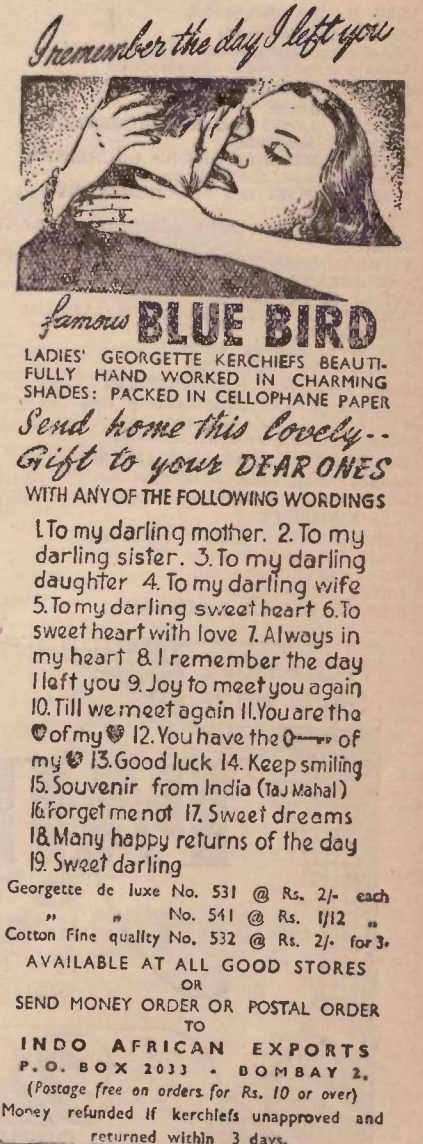 I remember the day I left you
famous BLUE BIRD
LADIES' GEORGETTE KERCHIEFS BEAUTI-
FULLY HAND WORKED IN CHARMING
SHADES: PACKED IN CELLOPHANE PAPER
Send home this lovely--
Gift to your DEAR ONES
WITH ANY OF THE FOLLOWING WORDINGS
1. To my darling mother. 2. To my
darling sister. 3. To my darling
daughter 4. To my darling wife
5. To my darling sweet heart 6. To
sweet heart with love 7. Always in
my heart 8. I remember the day
I left you 9. Joy to meet you again
10. Till we meet again 11. You are the
♥ of my ♥ 12. You have the 🗝 of
my ♥ 13. Good luck 14. Keep smiling
15. Souvenir from India (Taj Mahal)
16. Forget me not 17. Sweet dreams
18. Many happy returns of the day
19. Sweet darling
Georgette de luxe No. 531 @ Rs. 2/- each
„ „ No. 541 @ Rs. 1/12 „
Cotton Fine quality No. 532 @ Rs. 2/- for 3.
AVAILABLE AT ALL GOOD STORES
OR
SEND MONEY ORDER OR POSTAL ORDER
TO
INDO AFRICAN EXPORTS
P. O. BOX 2033 - BOMBAY 2.
(Postage free on orders for Rs. 10 or over)
Money refunded if kerchiefs unapproved and
returned within 3 days.